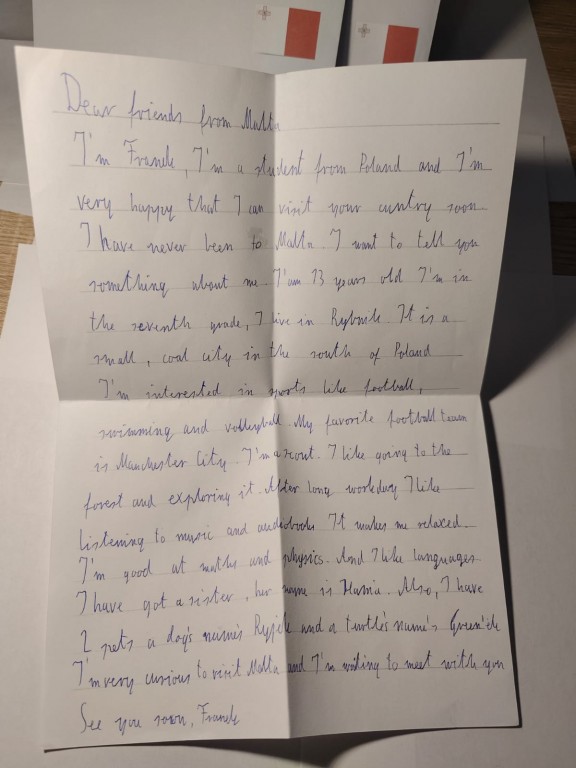 Dear friends from Malta
I'm Franek, I'm a student from Poland and I'm
very happy that I can visit your cuntry soon
I have never been to Malta. I want to tell you
something about me. I'am 13 years old I'm in
the seventh grade, I live in Rybnik. It is a
small, coal city in the south of Poland
I'm interested in sports like football,
swimming and volleyball. My favorite football team
is Manchester City. I'm a scout. I like going to the
forest and exploring it. After long workday I like
listening to music and audiobooks It makes me relaxed.
I'm good at maths and physics. And I like languages
I have got a sister, her name is Hania. Also, I have
2 pets a dog's name's Ryjek and a turtle's name's
I'm very curious to visit Malta and I'm waiting to meet with you
See you soon, Franek